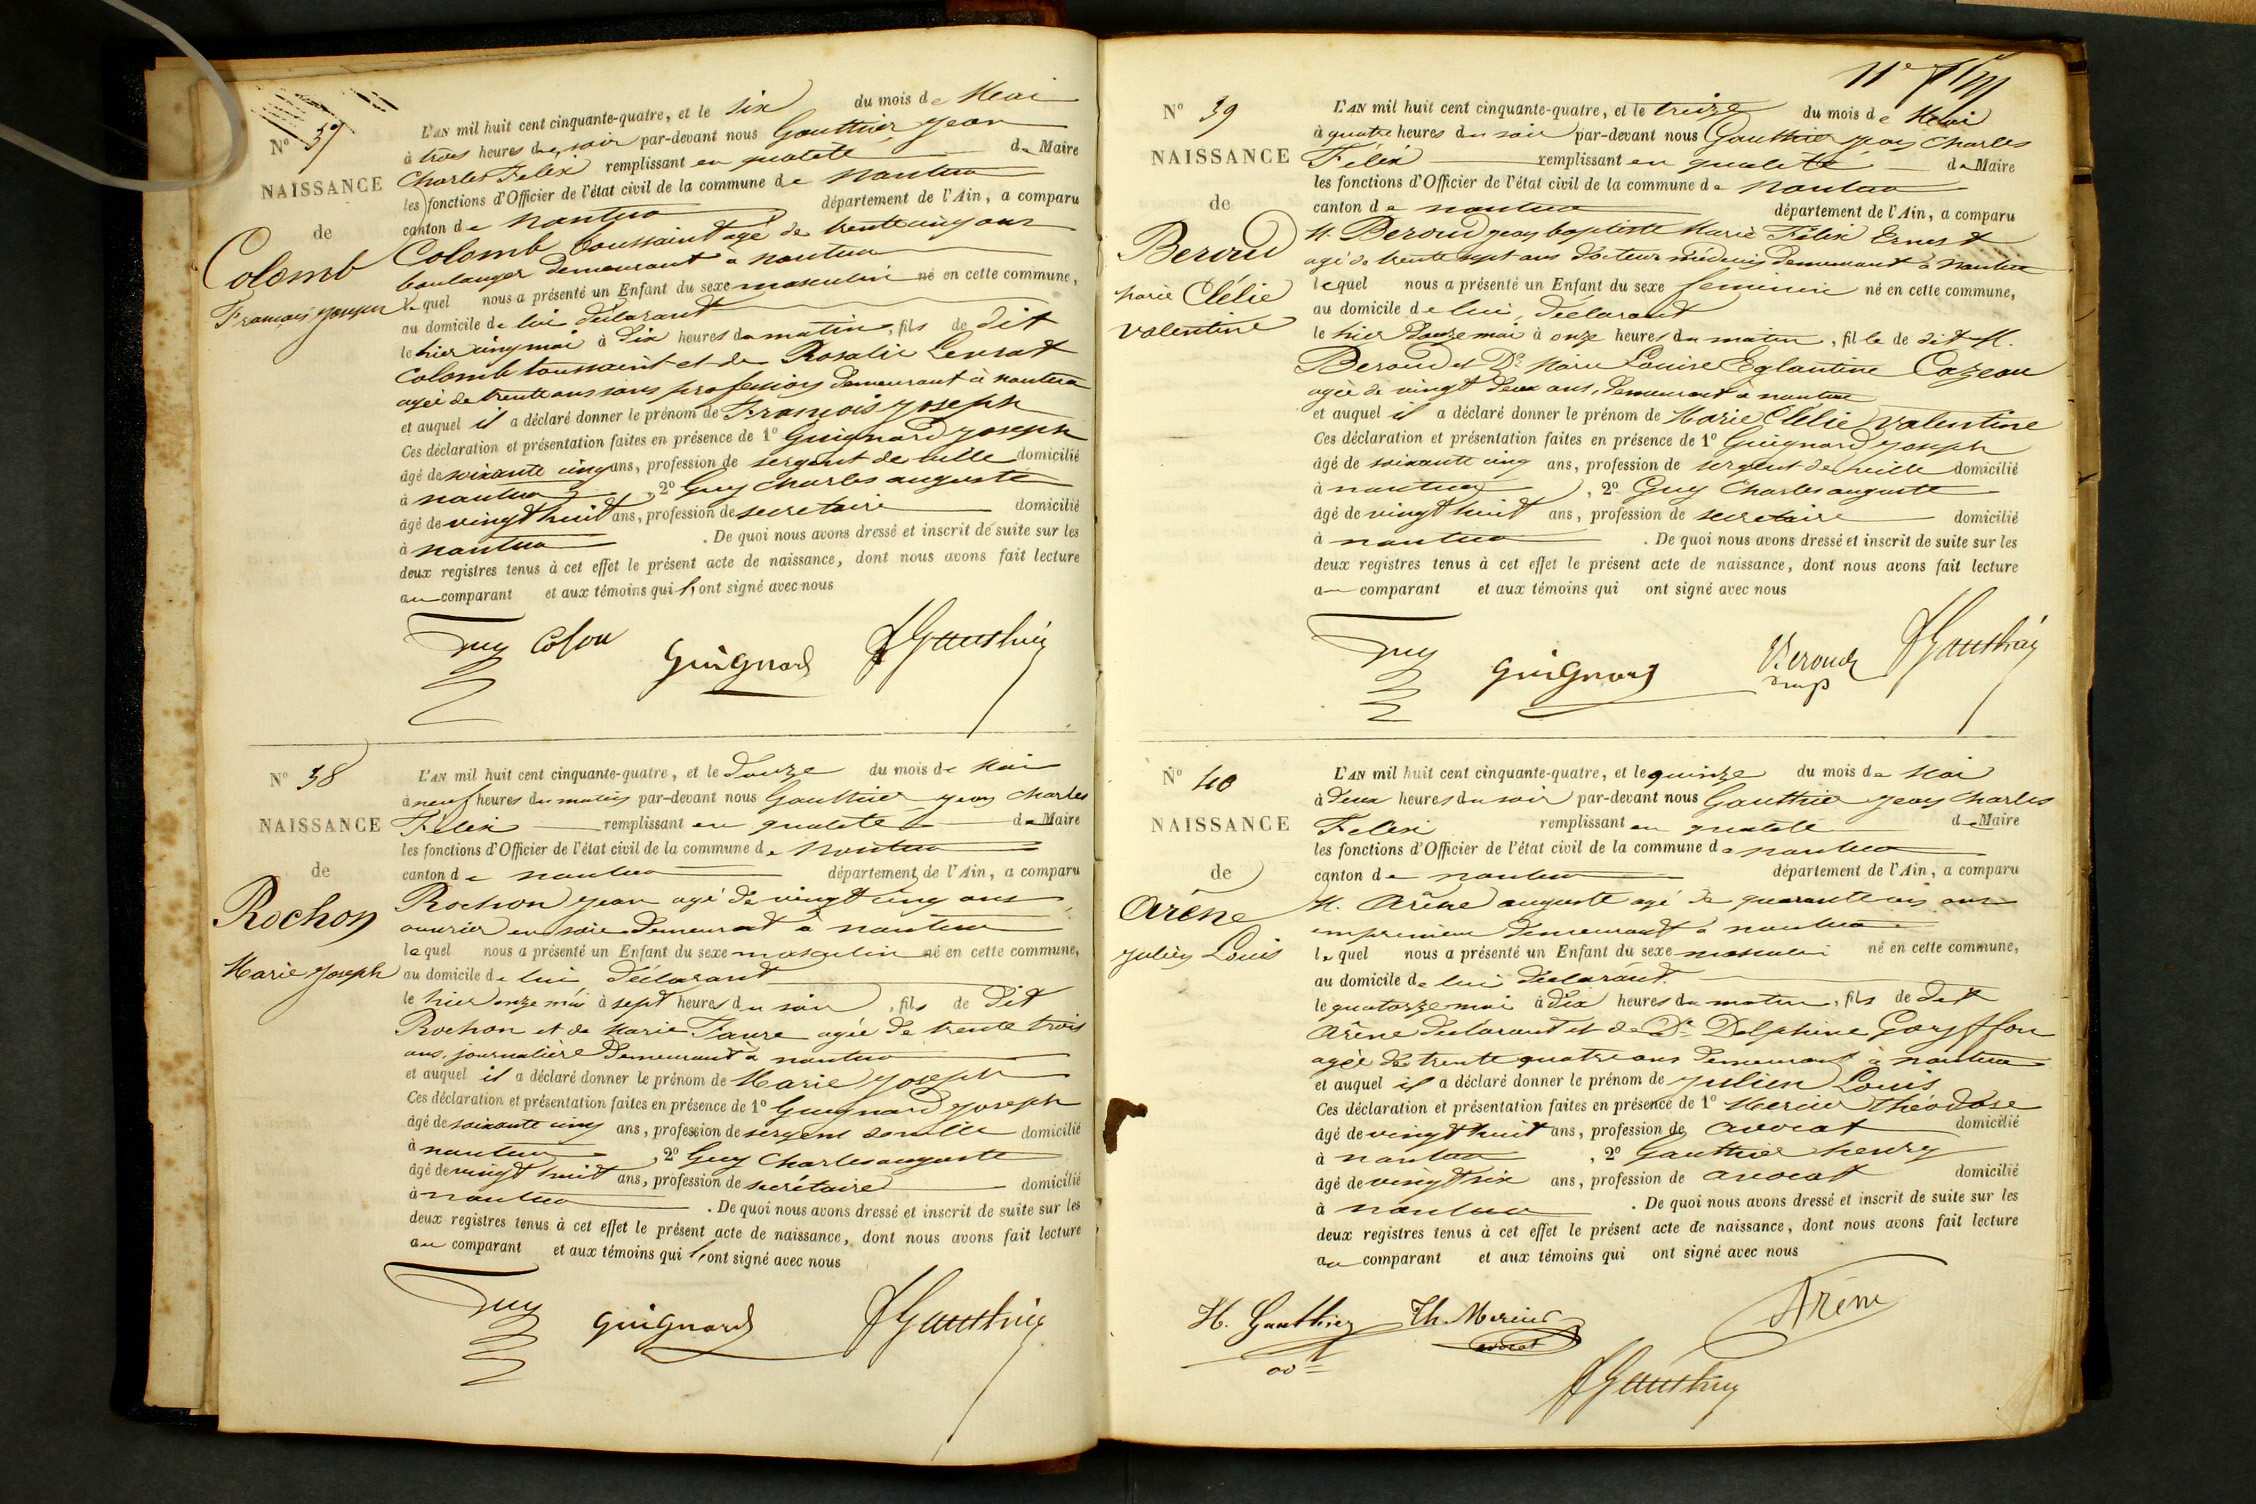 N° 37
NAISSANCE
de
Colomb
François Joseph
L'AN mil huit cent cinquante-quatre, et le six du mois de Mai
à trois heures du soir par-devant nous Gauthier Jean
Charles Felix remplissant en qualité de Maire
les fonctions d'Officier de l'état civil de la commune de nantua
canton de nantua département de l'Ain, a comparu
Colomb toussaint agé de trente cinq ans
boulanger demeurant à nantua
lequel nous a présenté un Enfant du sexe masculin né en cette commune,
au domicile de lui déclarant
le hier cinq mai à dix heures du matin, fils de dit
Colomb toussaint et de Rosalie
agée de trente ans sans profession demeurant à nantua
et auquel il a déclaré donner le prénom de François Joseph
Ces déclaration et présentation faites en présence de 1° Guignard Joseph
âgé de soixante cinq ans, profession de sergent de ville domicilié
à nantua, 2° Guy Charles auguste
âgé de vingt huit ans, profession de secretaire domicilié
à nantua. De quoi nous avons dressé et inscrit de suite sur les
deux registres tenus à cet effet le présent acte de naissance, dont nous avons fait lecture
au comparant et aux témoins qui ont signé avec nous
Guy Guignard Gauthier
N° 38
NAISSANCE
de
Rochon
Marie Joseph
L'AN mil huit cent cinquante-quatre, et le douze du mois de Mai
à neuf heures du matin par-devant nous Gauthier Jean Charles
Félix remplissant en qualité de Maire
les fonctions d'Officier de l'état civil de la commune de Nantua
canton de nantua département de l'Ain, a comparu
Rochon Jean agé de vingt cinq ans
ouvrier en soie demeurant à nantua
lequel nous a présenté un Enfant du sexe masculin né en cette commune,
au domicile de lui déclarant
le hier onze mai à sept heures du soir, fils de dit
Rochon et de Marie Favre agée de trente trois
ans, journalière demeurant à nantua
et auquel il a déclaré donner le prénom de Marie Joseph
Ces déclaration et présentation faites en présence de 1° Guignard Joseph
âgé de soixante cinq ans, profession de sergent de ville domicilié
à nantua, 2° Guy Charles auguste
âgé de vingt huit ans, profession de secrétaire domicilié
à nantua. De quoi nous avons dressé et inscrit de suite sur les
deux registres tenus à cet effet le présent acte de naissance, dont nous avons fait lecture
au comparant et aux témoins qui ont signé avec nous
Guy Guignard Gauthier
N° 39
NAISSANCE
de
Beroud
Marie Clélie
Valentine
L'AN mil huit cent cinquante-quatre, et le treize du mois de Mai
à quatre heures du soir par-devant nous Gauthier Jean Charles
Félix remplissant en qualité de Maire
les fonctions d'Officier de l'état civil de la commune de nantua
canton de nantua département de l'Ain, a comparu
M. Beroud Jean baptiste Marie Félix Ernest
agé de trente sept ans docteur médecin demeurant à Nantua
lequel nous a présenté un Enfant du sexe feminin né en cette commune,
au domicile de lui, déclarant
le hier douze mai à onze heures du matin, fille de dit M.
Beroud et De Marie Louise Eglantine Cazeau
agée de vingt deux ans, demeurant à nantua
et auquel il a déclaré donner le prénom de Marie Clélie Valentine
Ces déclaration et présentation faites en présence de 1° Guignard Joseph
âgé de soixante cinq ans, profession de sergent de ville domicilié
à nantua, 2° Guy Charles auguste
âgé de vingt huit ans, profession de secretaire domicilié
à nantua. De quoi nous avons dressé et inscrit de suite sur les
deux registres tenus à cet effet le présent acte de naissance, dont nous avons fait lecture
au comparant et aux témoins qui ont signé avec nous
Guy Guignard Beroud Gauthier
N° 40
NAISSANCE
de
Arène
Julien Louis
L'AN mil huit cent cinquante-quatre, et le quinze du mois de Mai
à deux heures du soir par-devant nous Gauthier Jean Charles
Félix remplissant en qualité de Maire
les fonctions d'Officier de l'état civil de la commune de nantua
canton de nantua département de l'Ain, a comparu
M. Arène auguste agé de quarante ans
imprimeur demeurant à nantua
lequel nous a présenté un Enfant du sexe masculin né en cette commune,
au domicile de lui déclarant
le quatorze mai à dix heures du matin, fils de dit
Arène déclarant et de De Delphine
agée de trente quatre ans demeurant à nantua
et auquel il a déclaré donner le prénom de Julien Louis
Ces déclaration et présentation faites en présence de 1° Mercier théodose
âgé de vingt huit ans, profession de avocat domicilié
à nantua, 2° Gauthier henry
âgé de vingt six ans, profession de avocat domicilié
à nantua. De quoi nous avons dressé et inscrit de suite sur les
deux registres tenus à cet effet le présent acte de naissance, dont nous avons fait lecture
au comparant et aux témoins qui ont signé avec nous
H. Gauthier Th. Mercier Arène
avt avocat
Gauthier